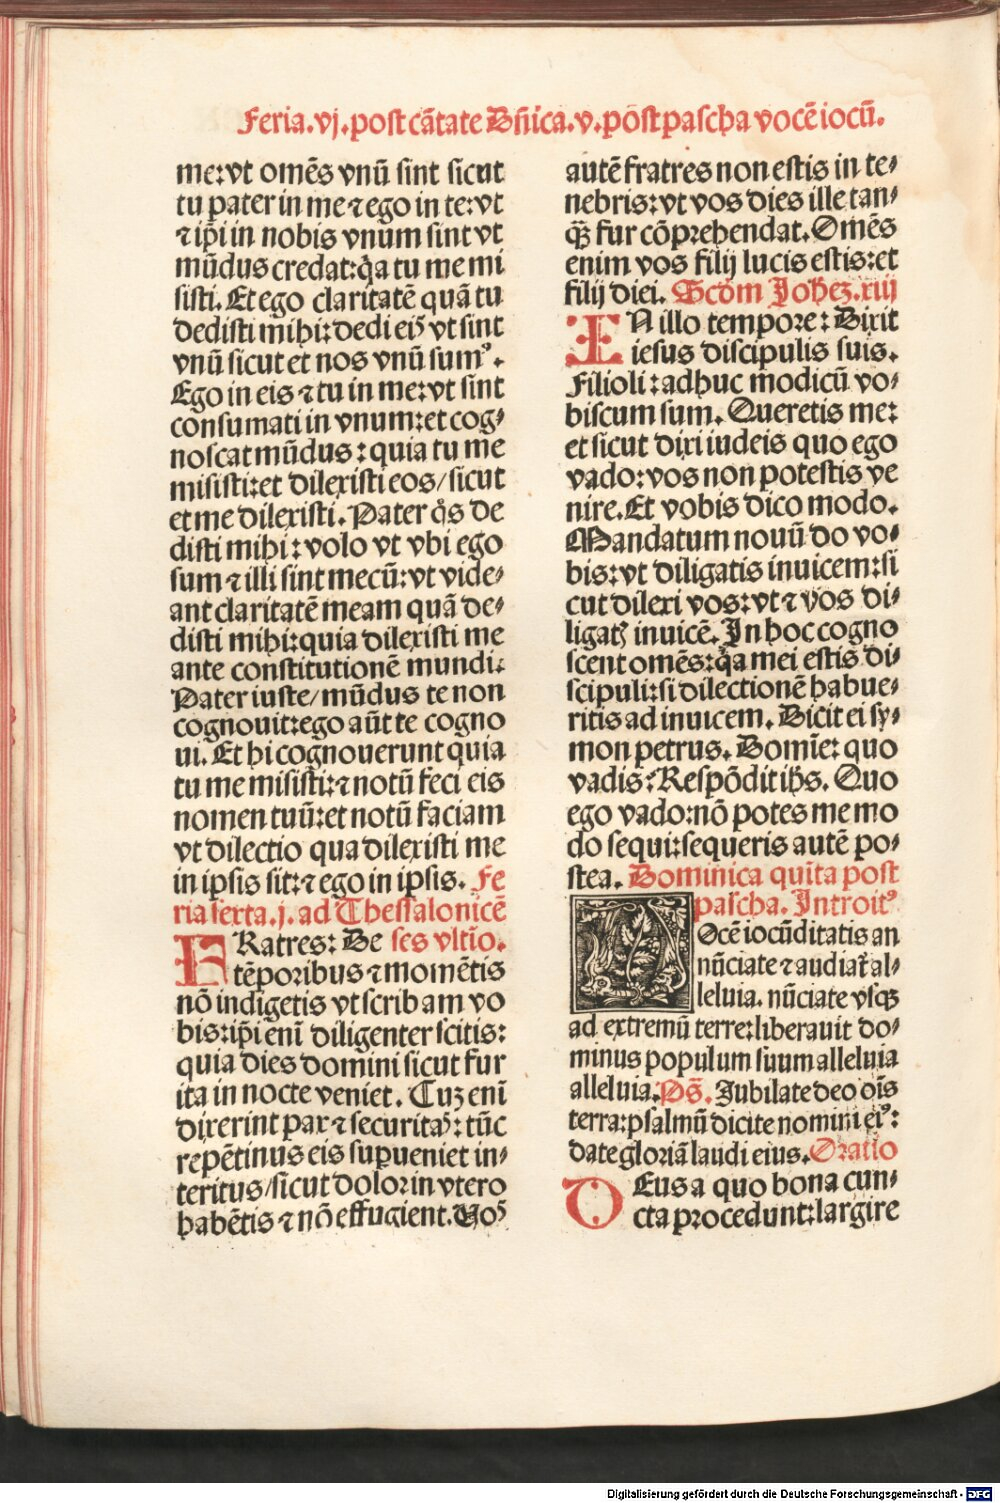 Feria.vj.post cātate Dn̄ica.v.post pascha vocē iocū.
me:vt omēs vnū sint sicut
tu pater in me ⁊ ego in te:vt
⁊ ip̄i in nobis vnum sint vt
mūdus credat:q̄a tu me mi
sisti. Et ego claritatē quā tu
dedisti mihi:dedi eiꝰ vt sint
vnū sicut et nos vnū sumꝰ.
Ego in eis ⁊ tu in me:vt sint
consumati in vnum:et cog⸗
noscat mūdus:quia tu me
misisti:et dilexisti eos/sicut
et me dilexisti. Pater q̄s de
disti mihi:volo vt vbi ego
sum ⁊ illi sint mecū:vt vide⸗
ant claritatē meam quā de⸗
disti mihi:quia dilexisti me
ante constitutionē mundi.
Pater iuste/mūdus te non
cognouit:ego aūt te cogno
ui. Et hi cognouerunt quia
tu me misisti:⁊ notū feci eis
nomen tuū:et notū faciam
vt dilectio qua dilexisti me
in ipsis sit:⁊ ego in ipsis. Fe
ria sexta.j.ad Thessalonicē
FRatres: De ses vltīo.
tēporibus ⁊ momētis
nō indigetis vt scribam vo
bis:ip̄i enī diligenter scitis:
quia dies domini sicut fur
ita in nocte veniet. Cuz enī
dixerint pax ⁊ securitaꝰ:tūc
repētinus eis superueniet in⸗
teritus/sicut dolor in vtero
habētis ⁊ nō effugient. Uoꝰ
autē fratres non estis in te⸗
nebris:vt vos dies ille tan⸗
qꝫ fur cōprehendat. Omēs
enim vos filij lucis estis:et
filij diei. Scdm Joheꝫ.xiij
IN illo tempore: Dixit
iesus discipulis suis.
Filioli:adhuc modicū vo⸗
biscum sum. Queretis me:
et sicut dixi iudeis quo ego
vado:vos non potestis ve
nire. Et vobis dico modo.
Mandatum nouū do vo⸗
bis:vt diligatis inuicem:si
cut dilexi vos:vt ⁊ vos di⸗
ligatꝭ inuicē. In hoc cogno
scent omēs:q̄a mei estis di⸗
scipuli:si dilectionē habue⸗
ritis ad inuicem. Dicit ei sy⸗
mon petrus. Domīe: quo
vadis? Respōdit ih̄s. Quo
ego vado:nō potes me mo
do sequi:sequeris autē po⸗
stea. Dominica quīta post
pascha. Introitꝰ
VOcē iocūditatis an
nūciate ⁊ audiat̄ al⸗
leluia. nūciate vsqꝫ
ad extremū terre:liberauit do⸗
minus populum suum alleluia
alleluia. Ps̄. Iubilate deo ois̄
terra:psalmū dicite nomini eiꝰ:
date gloriā laudi eius. Oratio
DEus a quo bona cun⸗
cta procedunt:largire
Digitalisierung gefördert durch die Deutsche Forschungsgemeinschaft - DFG